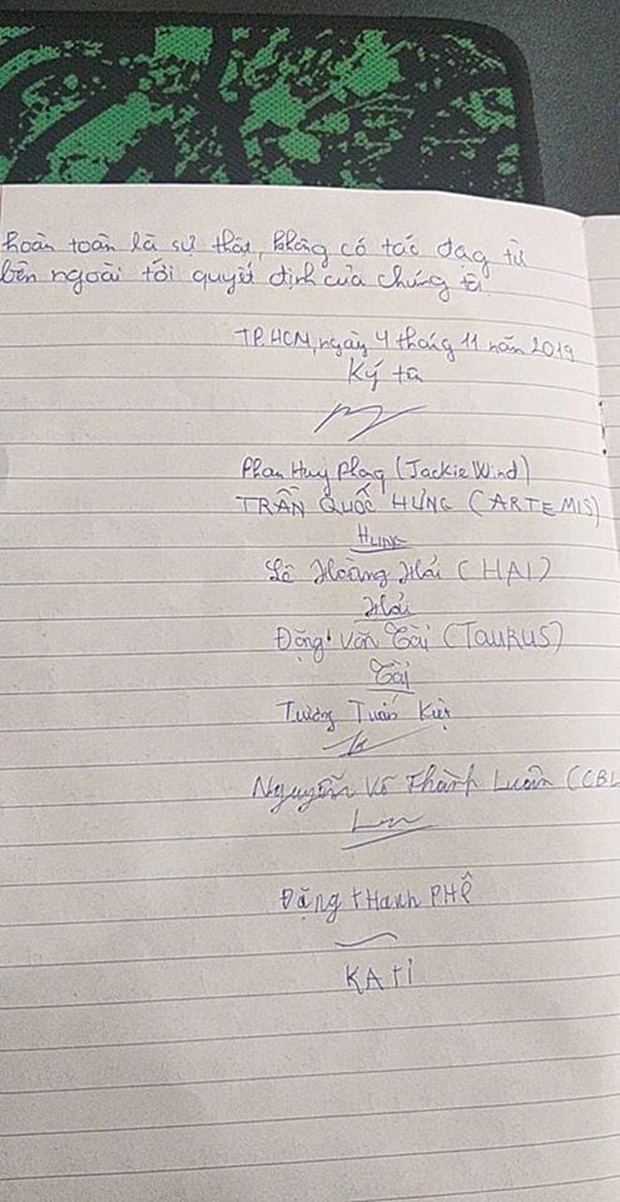 hoàn toàn là sự thật, không có tác động từ
bên ngoài tới quyết định của chúng tôi.
TP.HCM, ngày 4 tháng 11 năm 2019
Ký tên
Phan Huy Phong (Jackie Wind)
TRẦN QUỐC HƯNG (ARTEMIS)
HƯNG
Lê Hoàng Hải (HAI)
Hải
Đặng Văn Tài (TAURUS)
Tài
Tương Tuấn Kiệt
Nguyễn Võ Thành Luân (CBL
Đặng thanh PHÊ
KATI